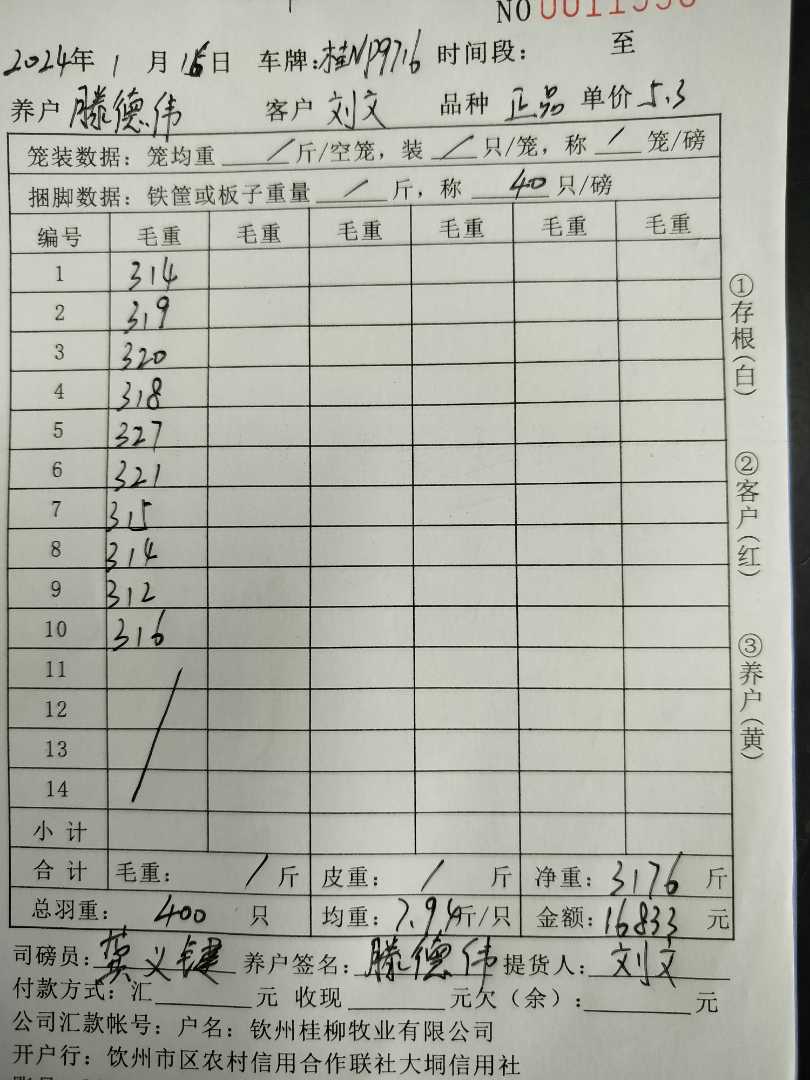 NO 0011996
2024年 1 月 15日 车牌:桂NP9716 时间段: 至
养户 滕德伟 客户 刘文 品种 正品 单价 5.3
笼装数据: 笼均重 / 斤/空笼, 装 / 只/笼, 称 / 笼/磅
捆脚数据: 铁筐或板子重量 / 斤, 称 40 只/磅
编号 毛重 毛重 毛重 毛重 毛重 毛重
1 314
2 319
3 320
4 318
5 327
6 321
7 315
8 314
9 312
10 316
11
12
13
14
小 计
合 计 毛重: / 斤 皮重: / 斤 净重: 3176 斤
总羽重: 400 只 均重: 7.94斤/只 金额: 16833 元
司磅员: 龚义键 养户签名: 滕德伟 提货人: 刘文
付款方式: 汇 元 收现 元欠(余): 元
公司汇款帐号: 户名: 钦州桂柳牧业有限公司
开户行: 钦州市区农村信用合作联社大垌信用社
①存根(白)
②客户(红)
③养户(黄)